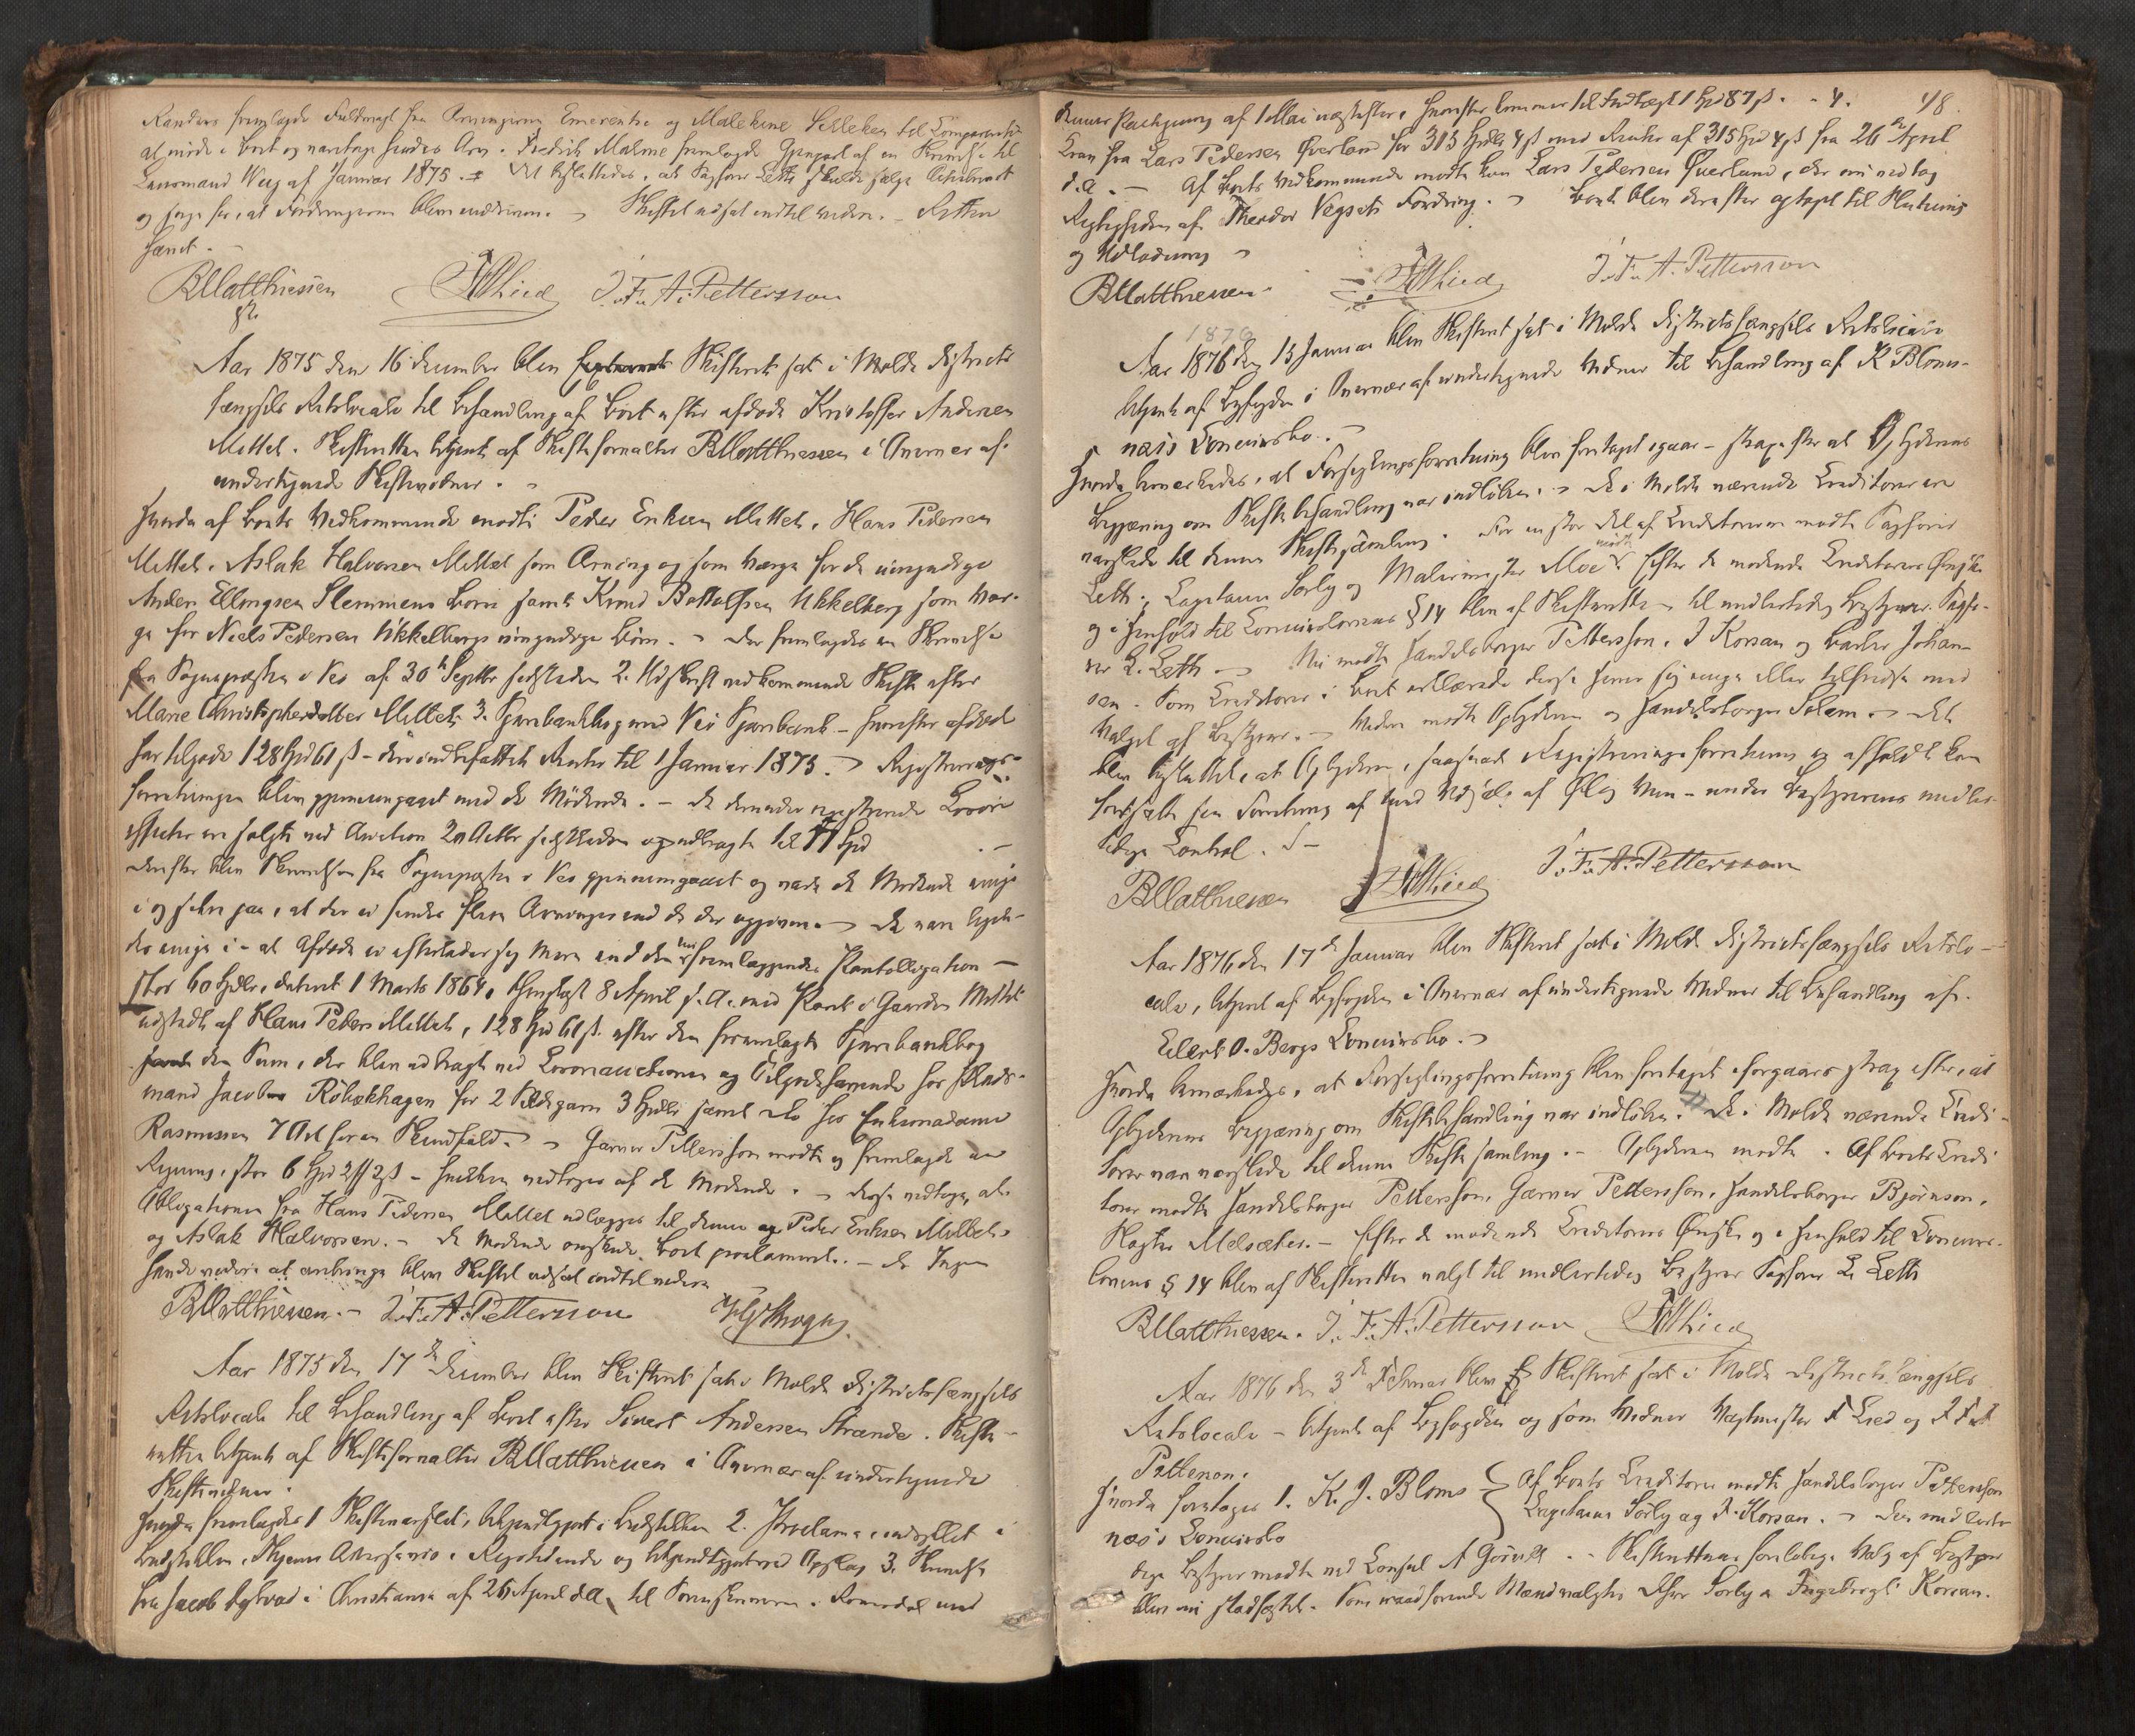 Randers fremlagde Fuldmagt fra Arvingerne Emerentse og Malekine Selleken til Comparenten
at møde i Boet og varetage hendes Arv. Fredrik Malme fremlagde Gjenpart af en Skrivelse til
Lensmand Weeg af Januar 1875. Det besluttedes, at Sagfører Leth skulde sælge
og sørge for, at Fordringerne bleve inddrevne. Skiftet udsat indtil videre. Retten
hævet.
BMatthiessen J. F. A. Pettersson
Aar 1875 den 16 December blev Skifteret sat i Molde Districts
fængsels Retslocale til Behandling af Boet efter afdøde Kristoffer Andersen
Mittet. Skifteretten betjent af Skifteforvalter BMatthiessen i Overvær af
undertegnede Skiftevidner.
Hvorda af Boets Vedkommende mødte Peder Eriksen Mittet, Hans Pedersen
Mittet, Aslak Halvorsen Mittet som Arving og som Værge for de umyndige
Anders Ellingsen Slemmens Børn samt Knud Bottolfsen Ukkelberg som Vær-
ge for Niels Pedersen Ukkelbergs umyndige Børn. Der fremlagdes en Skrivelse
fra Sognepræsten i Veø af 30te Septbr sidstleden 2. Udskrift vedkommende Skifte efter
Marie Christophersdatter Mittet 3. Sparebankbog med Veø Sparebank – hvorefter afdøde
har tilgode 128 Spd 61 ß – deri indbefattet Renter til 1 Januar 1875. Registrerings-
forretningen blev gjennemgaaet med de Mødende. – De derunder registrerede Løsøre
effecter ere solgte ved Auction 20 Octbr sidstleden og udbragte til Spd
Derefter blev Skrivelsen fra Sognepræsten i Veø gjennemgaaet og vare de Mødende enige
i og sikre paa, at der ei findes flere Arvinger end de der opgivne. De vare ligele-
des enige i – at Afdøde ei efterlader sig mere end den her fremlæggende Pantobligation –
stor 60 Spdlr, dateret 1 Marts 1864, thinglæst 8 April s. A. med Pant i Gaarden Mittet
udstedt af Hans Peders Mittet, 128 Spd 61 ß efter den fremlagte Sparebankbog
samt den Sum, der blev udbragt ved Løsøreauctionen og Tilgodehavende hos Plads-
mand Jacob Röbækhagen for 2 Sildegarn 3 Spdlr samt do hos Enkemadame
Rasmussen 7 Ort for en Skindfeld. Garver Pettersson mødte og fremlagde en
Regning, stor 6 Spd – hvilken vedtoges af de Mødende. – Disse vedtoge, at
Obligationen fra Hans Pedersen Mittet udlægges til denne og Peder Eriksen Mittet
og Aslak Halvorsen. – De Mødende ønskede Boet proclameret. – Da Ingen
havde videre at anbringe blev Skiftet udsat indtil videre
BMatthiessen. J. F. A. Pettersson
Aar 1875 den 17de December blev Skifteret sat i Molde Districtsfængsels
Retslocale til Behandling af Boet efter Sivert Andersen Strande. Skifte-
retten betjent af Skifteforvalter BMatthiessen i Overvær af undertegnede
Skiftevidner.
Hvorda fremlagdes 1 Skiftevarslet, bekjendtgjort i Budstikken 2. Proclama, indrykket i
Budstikken, Adresseavis, Rigstidende og bekjendtgjort ved Opslag 3. Skrivelse
fra Jacob i Christiania af 26 April d.A. til Sorenskriveren i Romsdal med
48.
denne Pachtgiveren af 1 Mai næstefter, hvorefter kommer til Indtægt 1 Spd 87 ß. 4.
Krav fra Lars Pedersen Överland for 315 Spdlr 4 ß med Renter af 315 Spd 4 ß fra 26de April
d.A. – Af Boets Vedkommende mødte kun Lars Pedersen Överland, der nu vedtog
Rigtigheden af Theodor Vegsets Fordring. – Boet blev derefter optaget til Slutning
og Udlodning
BMatthiessen J. F. A. Pettersson
1876
Aar 1876 den 15 Januar blev Skifteret sat i Molde Districtsfængsels Retslocale
betjent af Byfogden i Overvær af undertegnede Vidner til Behandling af K Bloms-
næs's Concursbo. –
Hvorda bemærkedes, at Forseglingsforretning blev foretaget igaar – strax efter at Opbyderens
Begjæring om Skiftebehandling var indløben. – De i Molde værende Creditorer ere
varslede til denne Skiftesamling. For en stor Del af Creditorerne mødte Sagfører
Leth, Capitaine Sørby og Malermester Moe mødte. Efter de mødende Creditorers Ønske
og i Henhold til Concurslovens § 14 blev af Skifteretten – til midlertidig Bestyrer Sagfø-
rer L. Leth – Nu mødte Handelsborger Pettersson, I Korsan og Bager Johan-
sen. Som Creditorer i Boet erklærede disse Herrer sig enige eller tilfredse med
Valget af Bestyrer. – Videre mødte Opbyderen og Handelsborger Solem. – Det
blev besluttet, at Opbyderen, saasnart Registreringsforretning er afholdt kan
fortsætte sin Forretning af med Udsalg af Øl og Vin – under Bestyrerens umidde-
lige Control.
BMatthiessen J. F. A. Pettersson
Aar 1876 den 17de Januar blev Skifteret sat i Molde Districtsfængsels Retslo-
cale, betjent af Byfogden i Overvær af undertegnede Vidner til Behandling af
Eilert O. Bergs Concursbo. –
Hvorda bemærkedes, at Forseglingsforretning blev foretaget iforgaars strax efter, at
Opbyderens Begjæring om Skiftebehandling var indløben. De i Molde værende Credi-
torer vare varslede til denne Skiftesamling. – Opbyderen mødte. Af Boets Credi
torer mødte Handelsborger Pettersson, Garver Pettersson, Handelsborger Bjørnson,
Melsæter. – Efter de mødende Creditorers Ønske og i Henhold til Concurs-
lovens § 14 blev af Skifteretten valgt til midlertidig Bestyrer Sagfører L. Leth
BMatthiessen. J. F. A. Pettersson
Aar 1876 den 3de Februar blev Skifteret sat i Molde Districtsfængsels
Retslocale – betjent af Byfogden og som Vidner Vagtmester Lied og J F A
Petterson.
Hvorda foretages 1. K. J. Bloms- } Af Boets Creditorer mødte Handelsborger Pettersson
næs's Concursbo Capitaine Sørby og I. Korsan. – Den midlerti
dige Bestyrer mødte ved Consul A Gørvell. – Skifterettens foreløbige Valg af Bestyrer
blev nu stadfæstet. Som raadførende Mænd valgtes D'Hrr Sørby og Ingebrigt Korsan.